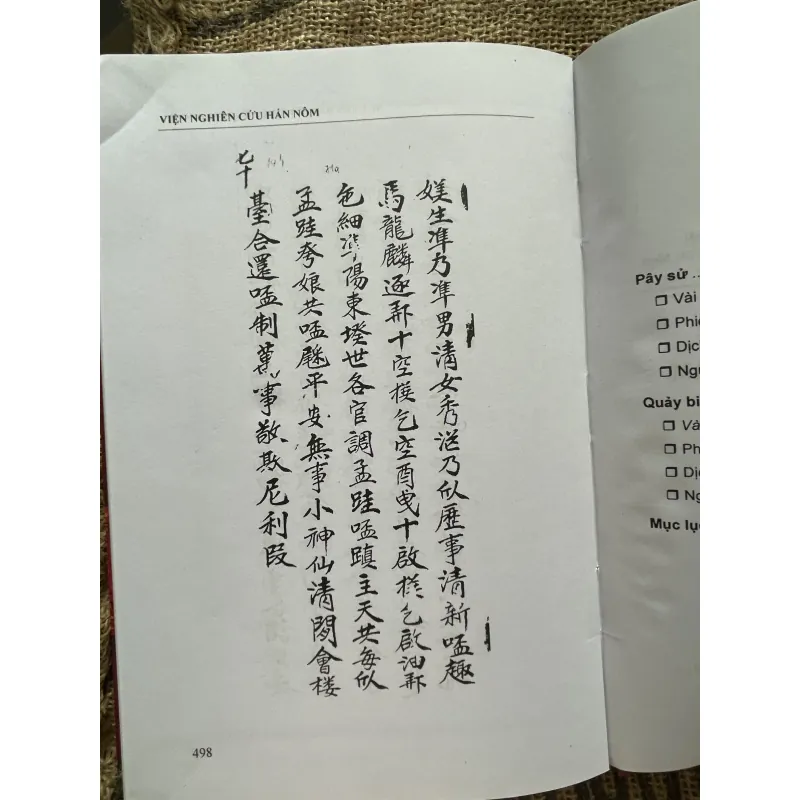 VIỆN NGHIÊN CỨU HÁN NÔM
媄生準乃準男清女秀送乃似歷事清新㗂趣
馬龍麟逐那十空揆乞空酉曳十啟揆乞啟油那
色細準陽東揆世各官調孟跬㗂蹎主天共每似
孟跬夸娘共㗂平安無事小神仙清閑會楼
臺合還㗂制萬事敬欺尼利段
七十
498
Pây sử ...
❒ Vài
❒ Phi
❒ Dịc
❒ Ng
Quảy bi
❒ Và
❒ Ph
❒ Dị
❒ Ng
Mục lục